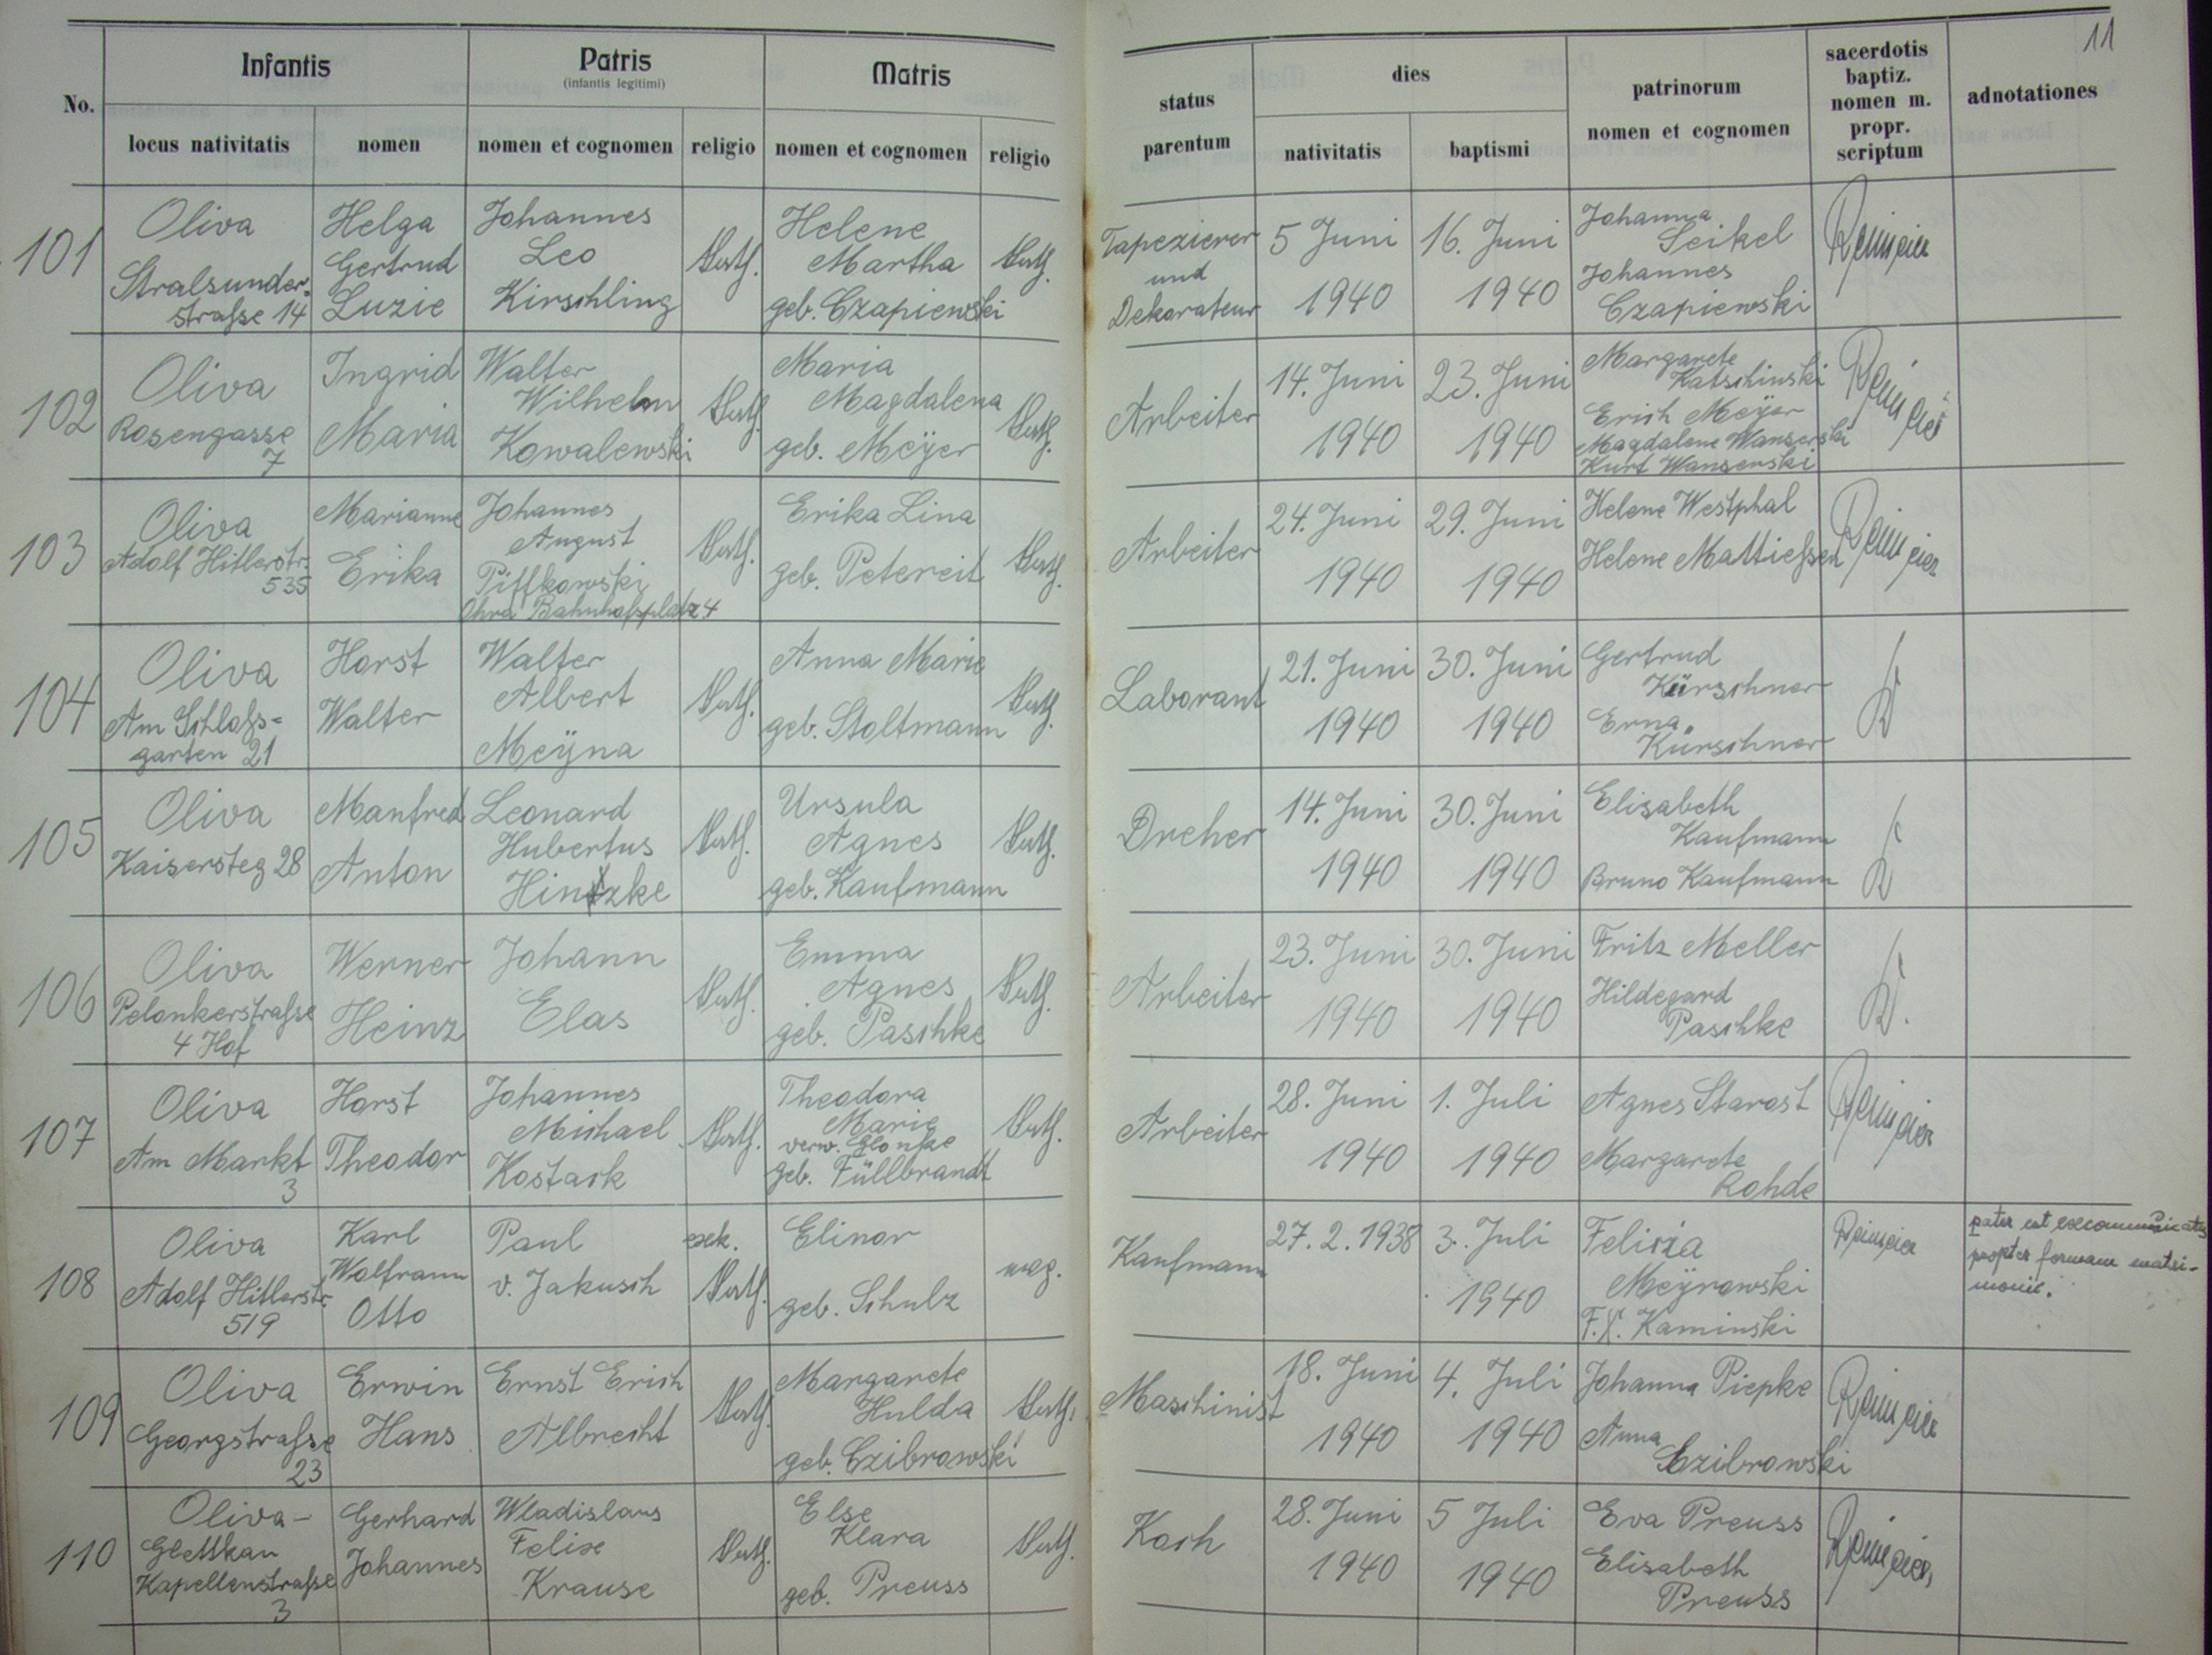 11
No.
Infantis
Patris
(infantis legitimi)
Matris
locus nativitatis
nomen
nomen et cognomen
religio
nomen et cognomen
religio
status
parentum
dies
nativitatis
baptismi
patrinorum
nomen et cognomen
sacerdotis
baptiz.
nomen m.
propr.
scriptum
adnotationes
101
Oliva
Stralsunder-
straße 14
Helga
Gertrud
Luzie
Johannes
Leo
Kirschling
kath.
Helene
Martha
geb. Czapiewski
kath.
Tapezierer
und
Dekorateur
5 Juni
1940
16. Juni
1940
Johanna
Seikel
Johannes
Czapiewski
102
Oliva
Rosengasse
7
Ingrid
Maria
Walter
Wilhelm
Kowalewski
kath.
Maria
Magdalena
geb. Meÿer
kath.
Arbeiter
14. Juni
1940
23. Juni
1940
Margarete
Katschinski
Erich Meÿer
Magdalene Wanserski
Kurt Wanserski
103
Oliva
Adolf Hitlerstr.
535
Marianne
Erika
Johannes
August
Piffkowski
Ohra Bahnhofsplatz 4
kath.
Erika Lina
geb. Petereit
kath.
Arbeiter
24. Juni
1940
29. Juni
1940
Helene Westphal
Helene Mattießen
104
Oliva
Am Schloß-
garten 21
Horst
Walter
Walter
Albert
Meÿna
kath.
Anna Marie
geb. Stoltmann
kath.
Laborant
21. Juni
1940
30. Juni
1940
Gertrud
Kürschner
Erna
Kürschner
105
Oliva
Kaisersteg 28
Manfred
Anton
Leonard
Hubertus
Hintzke
kath.
Ursula
Agnes
geb. Kaufmann
kath.
Dreher
14. Juni
1940
30. Juni
1940
Elisabeth
Kaufmann
Bruno Kaufmann
106
Oliva
Pelonkerstraße
4 Hof
Werner
Heinz
Johann
Elas
kath.
Emma
Agnes
geb. Paschke
kath.
Arbeiter
23. Juni
1940
30. Juni
1940
Fritz Meller
Hildegard
Paschke
107
Oliva
Am Markt
3
Horst
Theodor
Johannes
Michael
Kostack
kath.
Theodora
Marie
verw.
geb. Füllbrandt
kath.
Arbeiter
28. Juni
1940
1. Juli
1940
Agnes Starost
Margarete
Rohde
108
Oliva
Adolf Hitlerstr.
519
Karl
Wolfram
Otto
Paul
v. Jakusch
kath.
Elinor
geb. Schulz
Kaufmann
27. 2. 1938
3. Juli
1940
Felicia
Meÿrowski
F. X. Kaminski
pater est excommunicatus
propter formam matri-
monii.
109
Oliva
Georgstraße
23
Erwin
Hans
Ernst Erich
Albrecht
kath.
Margarete
Hulda
geb. Czibrowski
kath.
Maschinist
18. Juni
1940
4. Juli
1940
Johanna Piepke
Anna
Czibrowski
110
Oliva-
Glettkau
Kapellenstraße
3
Gerhard
Johannes
Wladislaus
Felix
Krause
kath.
Else
Klara
geb. Preuss
kath.
Koch
28. Juni
1940
5 Juli
1940
Eva Preuss
Elisabeth
Preuss